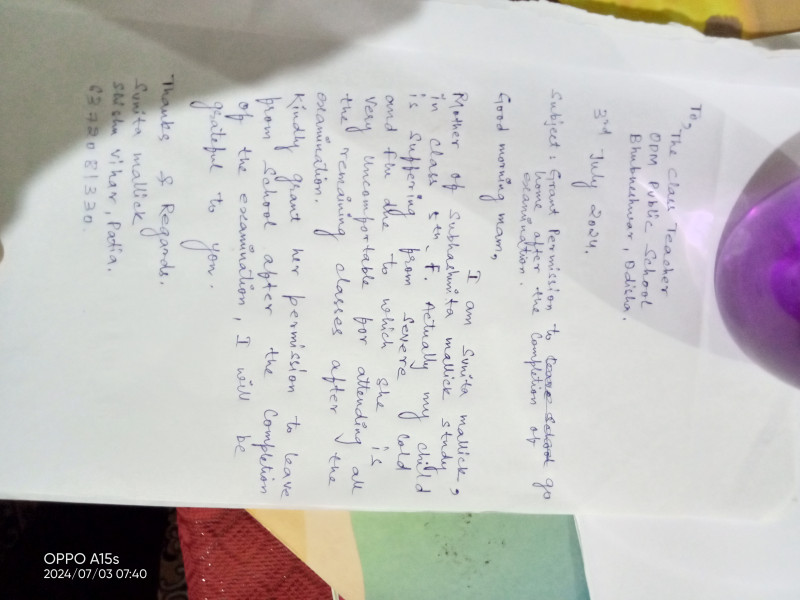 To, The Class Teacher
ODM Public School
Bhubneshwar, Odisha.
3rd July 2024.
Subject: Grant Permission to leave school go
home after the completion of
examination.
Good morning mam,
I am Sunita mallick,
Mother of Subhashmita mallick study
in class 5th 'f'. Actually my child
is suffering from severe cold
and flu due to which she is
very uncomfortable for attending all
the remaining classes after the
examination.
Kindly grant her permission to leave
from School after the completion
of the examination, I will be
grateful to you.
Thanks & Regards.
Sunita mallick
Sisshu Vihar, Patia.
6372081330.
OPPO A15s
2024/07/03 07:40